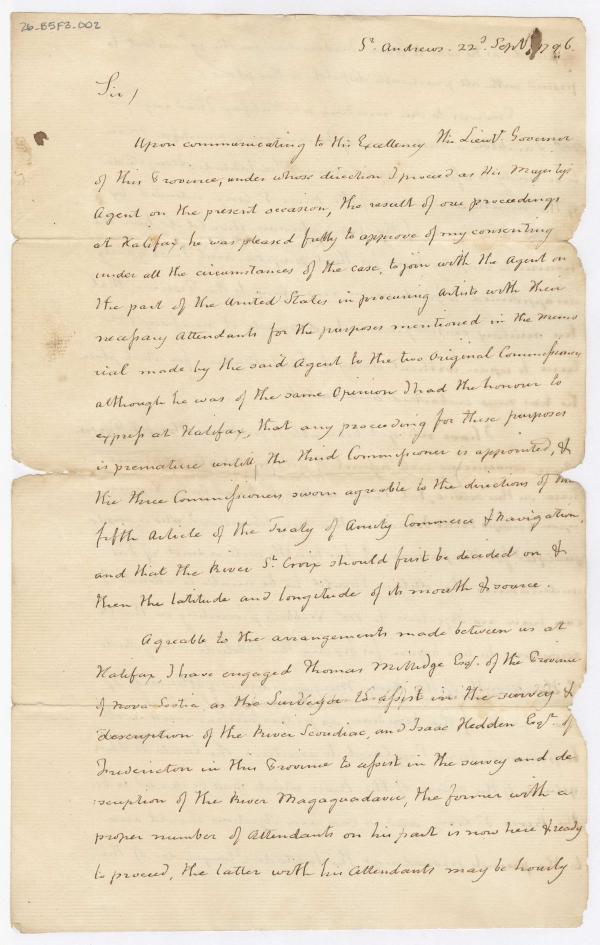 26-B5F3-002
St. Andrews. 22d. Septr. 1796.
Sir,
Upon communicating to His Excellency the Lieut. Governor
of this Province, under whose direction I proceed as His Majesty's
Agent on the present occasion, the result of our proceedings
at Halifax, he was pleased fully to approve of my consenting
under all the circumstances of the case, to join with the Agent on
the part of the United States in procuring Artists with their
necessary Attendants for the purposes mentioned in the Memo
rial made by the said Agent to the two Original Commissioners
although he was of the same Opinion I had the honour to
express at Halifax, that any proceeding for these purposes
is premature untill the third Commissioner is appointed, &
the three Commissioners sworn agreable to the directions of the
fifth Article of the Treaty of Amity Commerce & Navigation,
and that the River St. Croix should first be decided on &
then the latitude and longitude of its mouth & source.
Agreable to the arrangements made between us at
Halifax, I have engaged Thomas Millidge Esqr. of the Province
of Nova Scotia as the Surveyor to assist in the survey &
description of the River Scoudiac, and Isaac Hedden Esqr. of
Fredericton in this Province to assist in the survey and de
scription of the River Magaguadavic, the former with a
proper number of Attendants on his part is now here & ready
to proceed, the latter with his Attendants may be hourly